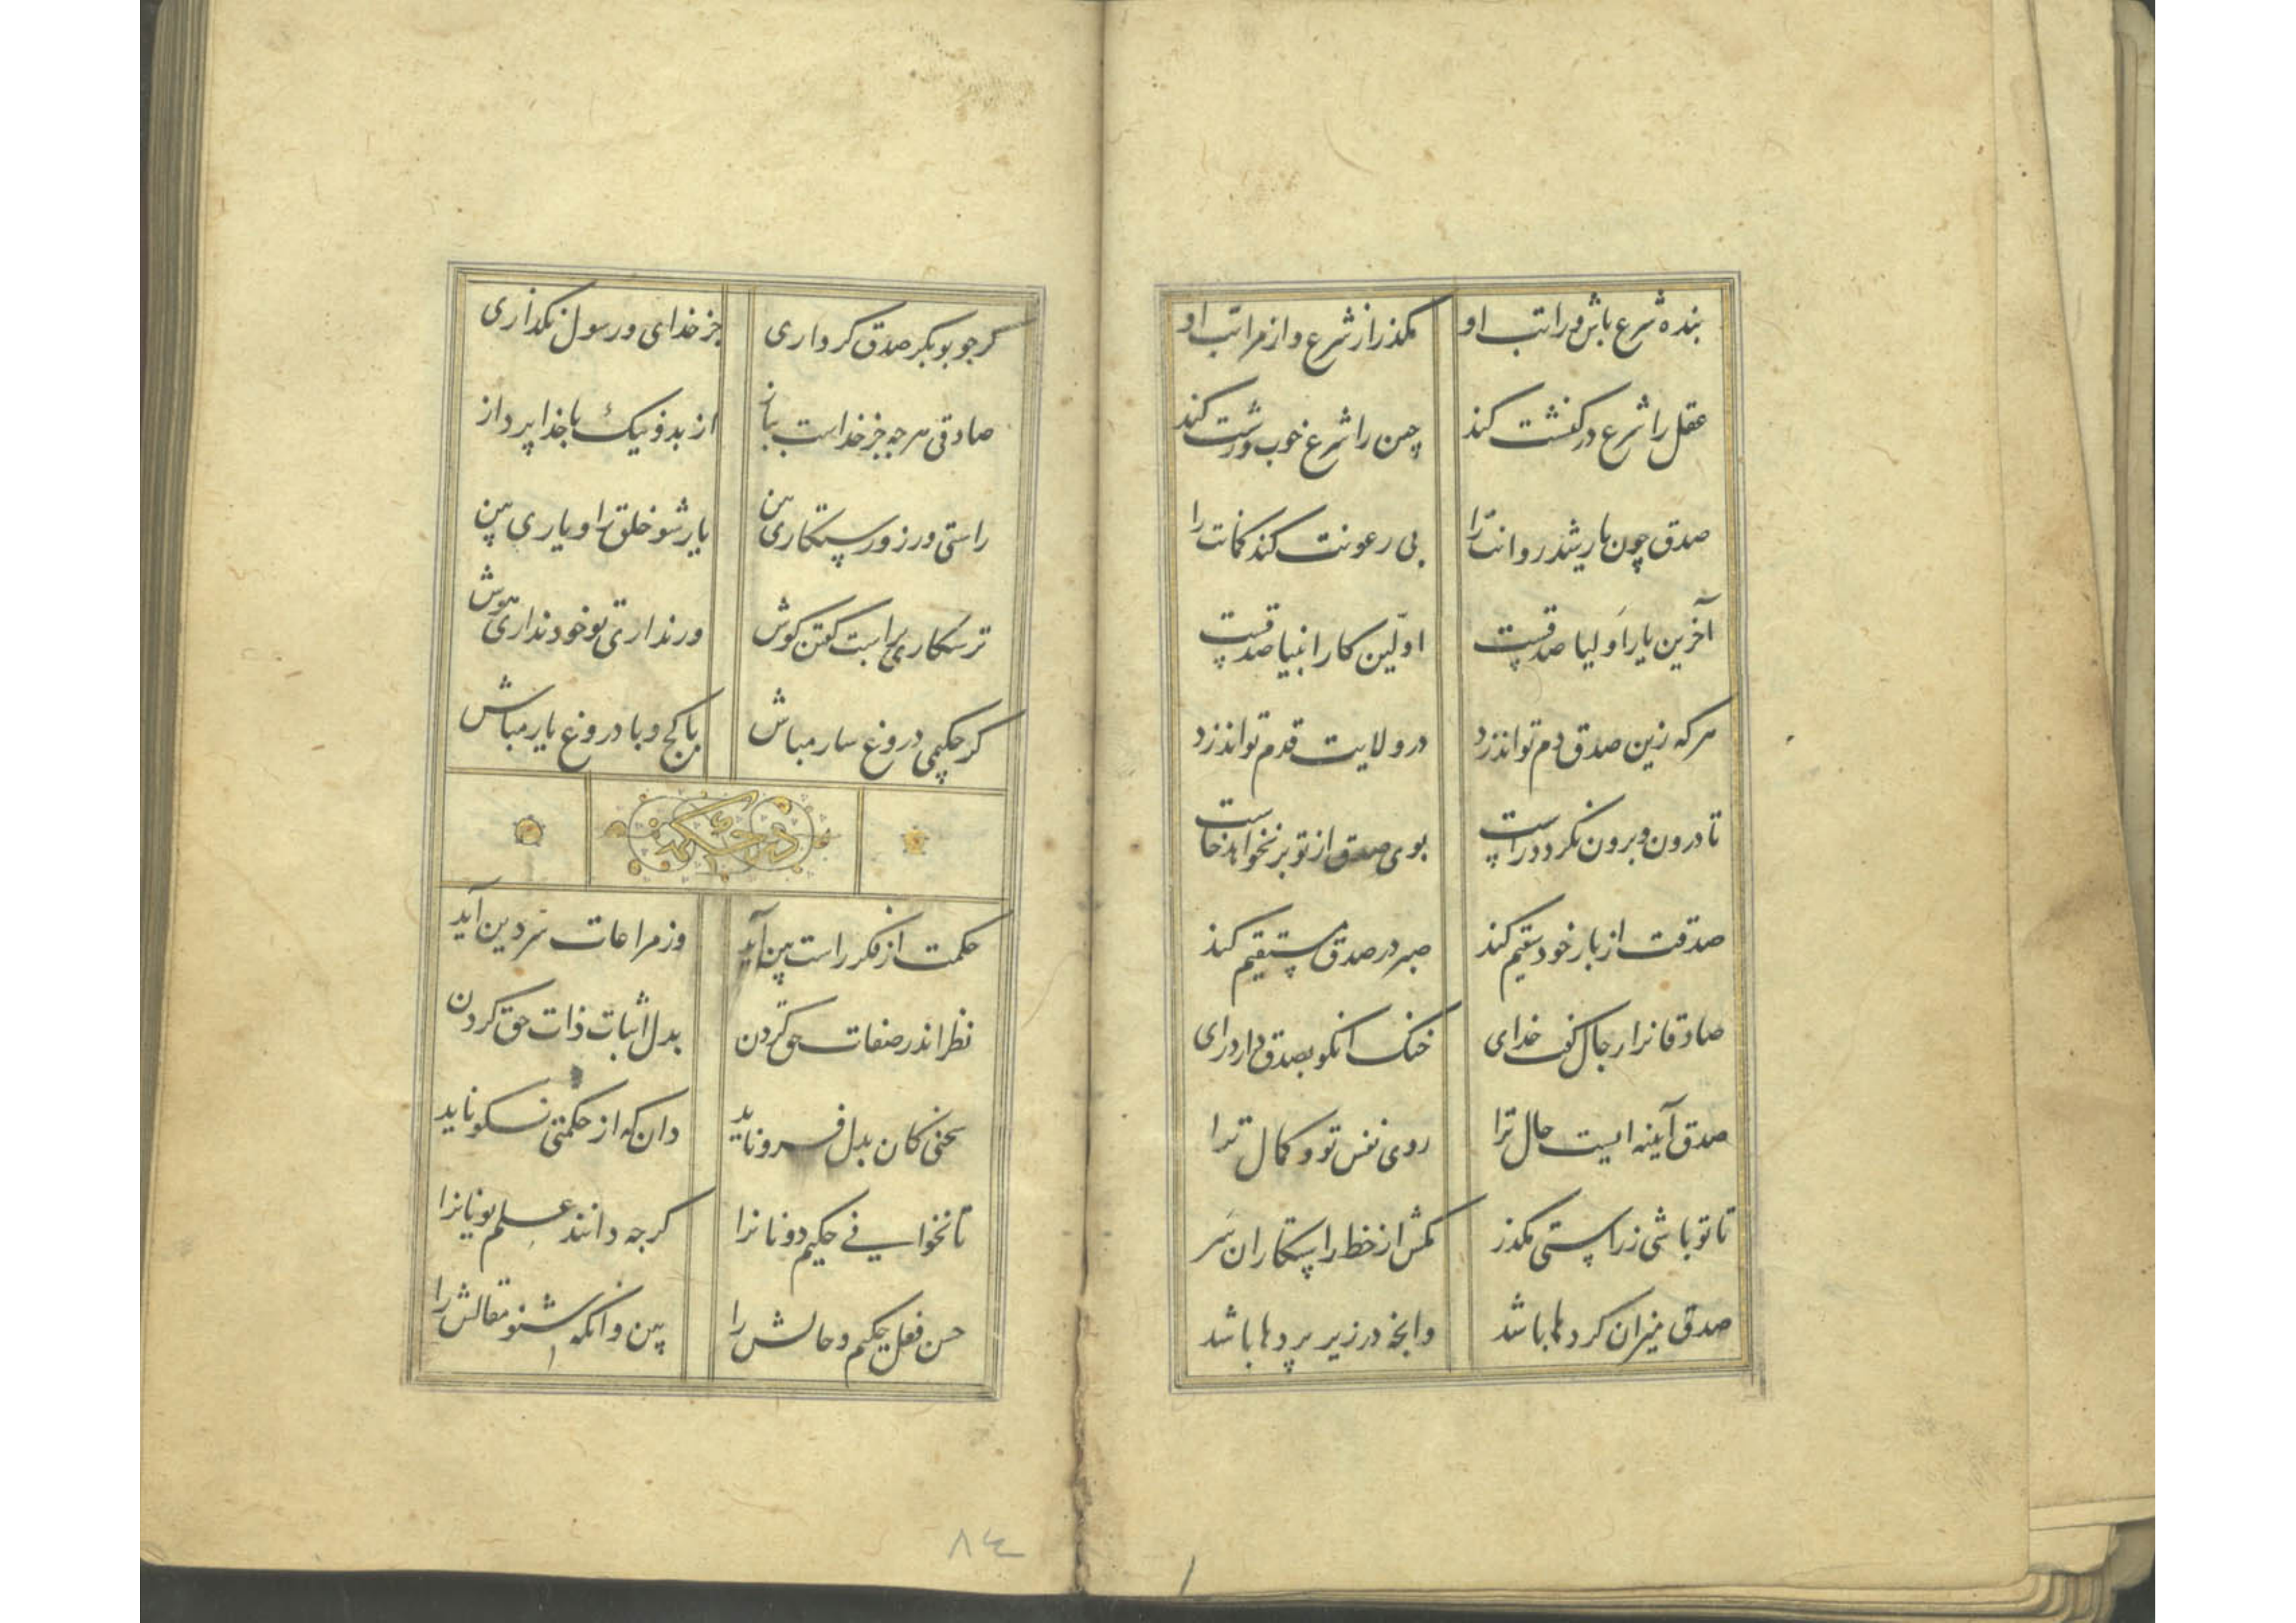 بنده شرع باش و راتب او مگذر از شرع و از مراتب او
عقل را شرع در کنشت کند چین را شرع خوب و زشت کند
صدق چون یار شد روانت را بی رعونت کند کمانت را
آخرین یار اولیا صدقست اولین کار انبیا صدقست
هرکه زین صدق دم تواند زد در ولایت قدم تواند زد
تا درون و برون نکردد راست بوی صدق از تو بر نخواهد خاست
صدقت از بار خود سقیم کند صبر در صدق مستقیم کند
صادقانرا رجال گفت خدای خنک آنکو بصدق دارد رای
صدق آینه ایست حال ترا روی نفس تو و کمال ترا
تا تو باشی ز راستی مگذر مکش از خط راستکاران سر
صدق میزان کردها باشد وانچه در زیر پردها باشد
کر چو بوبکر صدق کرداری جز خدای و رسول نگذاری
صادقی هرچه جز خداست بباز از بد و نیک با خدا پرداز
راستی ورز و رستکاری بین یار شو خلق را و یاری بین
ترسکاری براست گفتن کوش ور نداری تو خود نداری هوش
کر حکیمی دروغ سار مباش با کج و با دروغ یار مباش
در حکمت
حکمت از فکر راست بین آید وز مراعات سر دین آید
نظر اندر صفات حق کردن بدل اثبات ذات حق کردن
سخنی کان بدل فرو ناید دان که از حکمتی نکو ناید
تا نخوانی حکیم دونانرا کرچه دانند علم یونانرا
حسن فعل حکیم و حالش را بین و آنکه شنو مقالش را
٨٤